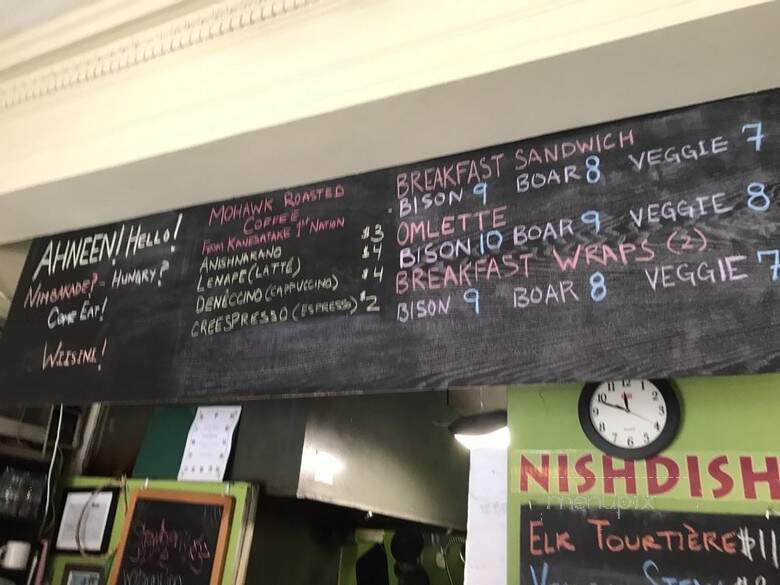 AHNEEN! HELLO!
NIMBAKADE? - HUNGRY?
COME EAT!
WIISINI!
MOHAWK ROASTED
COFFEE
FROM KANESATAKE 1ST NATION
ANISHNAKANO $3
LENAPE (LATTÉ) $4
DENECCINO (CAPPUCCINO) $4
CREESPRESSO (ESPRESSO) $2
BREAKFAST SANDWICH
BISON 9 BOAR 8 VEGGIE 7
OMLETTE
BISON 10 BOAR 9 VEGGIE 8
BREAKFAST WRAPS (2)
BISON 9 BOAR 8 VEGGIE 7
NISHDISH
menupix
ELK TOURTIÈRE $11